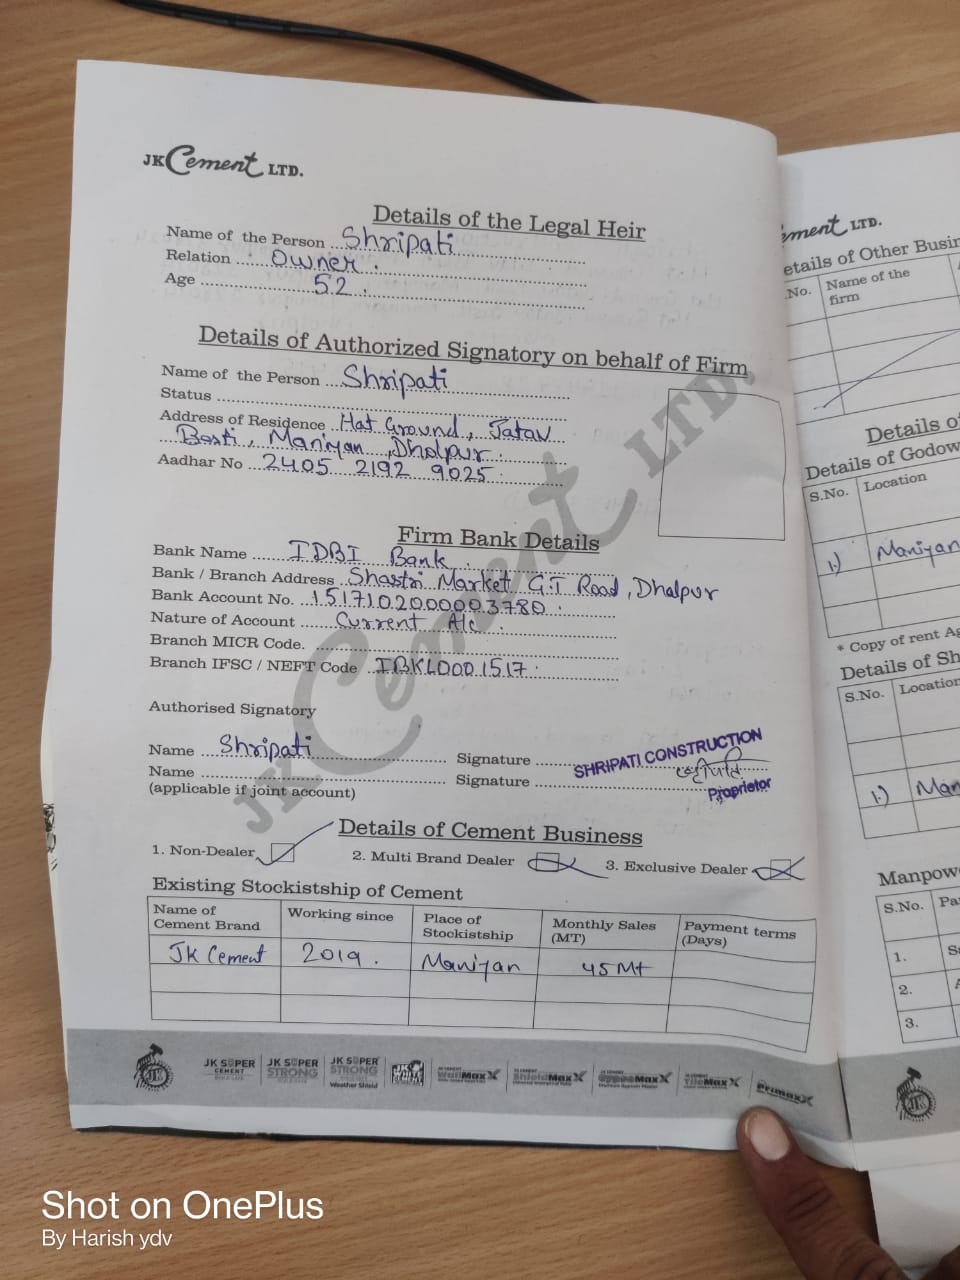 JK Cement LTD.
Details of the Legal Heir
Name of the Person Shripati
Relation Owner.
Age 52.
Details of Authorized Signatory on behalf of Firm
Name of the Person Shripati
Status
Address of Residence Hat Ground, Jatav
Basti, Maniyan, Dholpur.
Aadhar No 2405 2192 9025
Firm Bank Details
Bank Name IDBI Bank.
Bank / Branch Address Shastri Market G.T Road, Dhalpur
Bank Account No. 1517102000003780.
Nature of Account Current A/c
Branch MICR Code.
Branch IFSC / NEFT Code IBKL0001517.
Authorised Signatory
Name Shripati Signature
SHRIPATI CONSTRUCTION
Name Signature
Proprietor
(applicable if joint account)
Details of Cement Business
1. Non-Dealer 2. Multi Brand Dealer 3. Exclusive Dealer
Existing Stockistship of Cement
Name of Cement Brand Working since Place of Stockistship Monthly Sales (MT) Payment terms (Days)
JK Cement 2019. Maniyan 45 Mt
JK Cement LTD.
JK SUPER CEMENT JK SUPER STRONG JK SUPER STRONG Weather Shield WallMaxX ShieldMaxX GypsoMaxX TileMaxX PrimaxX
ement LTD.
etails of Other Busin
.No. Name of the firm
Details o
Details of Godow
S.No. Location
1.) Maniyan
* Copy of rent Ag
Details of Sh
S.No. Location
1.) Man
Manpow
S.No. Pa
1. S
2.
3.
Shot on OnePlus
By Harish ydv